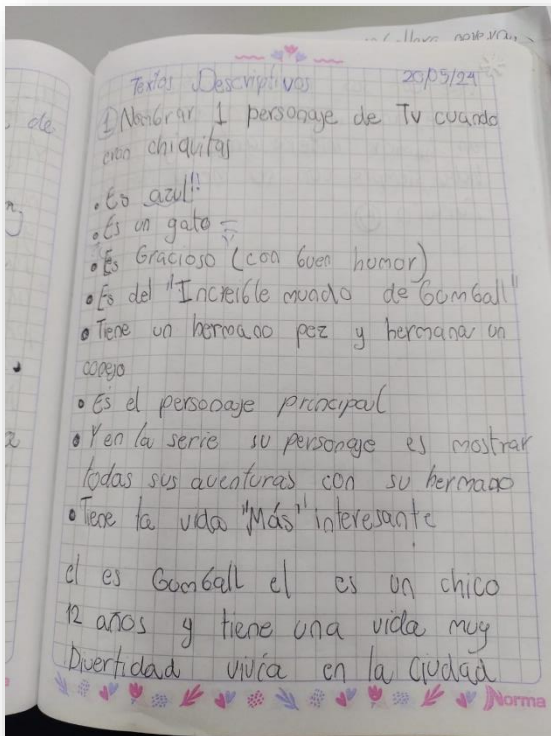 Textos Descriptivos 20/05/24
1) Nombrar 1 personaje de Tv cuando
eran chiquitas
• Es azul!!
• Es un gato
• Es Gracioso (con buen humor)
• Es del "Increible mundo de Gumball"
• Tiene un hermano pez y hermana un
conejo
• Es el personaje principal
• Y en la serie su personaje es mostrar
todas sus aventuras con su hermano
• Tiene la vida "Más" interesante
el es Gumball el es un chico
12 años y tiene una vida muy
Divertidad vivía en la Ciudad
Norma
de